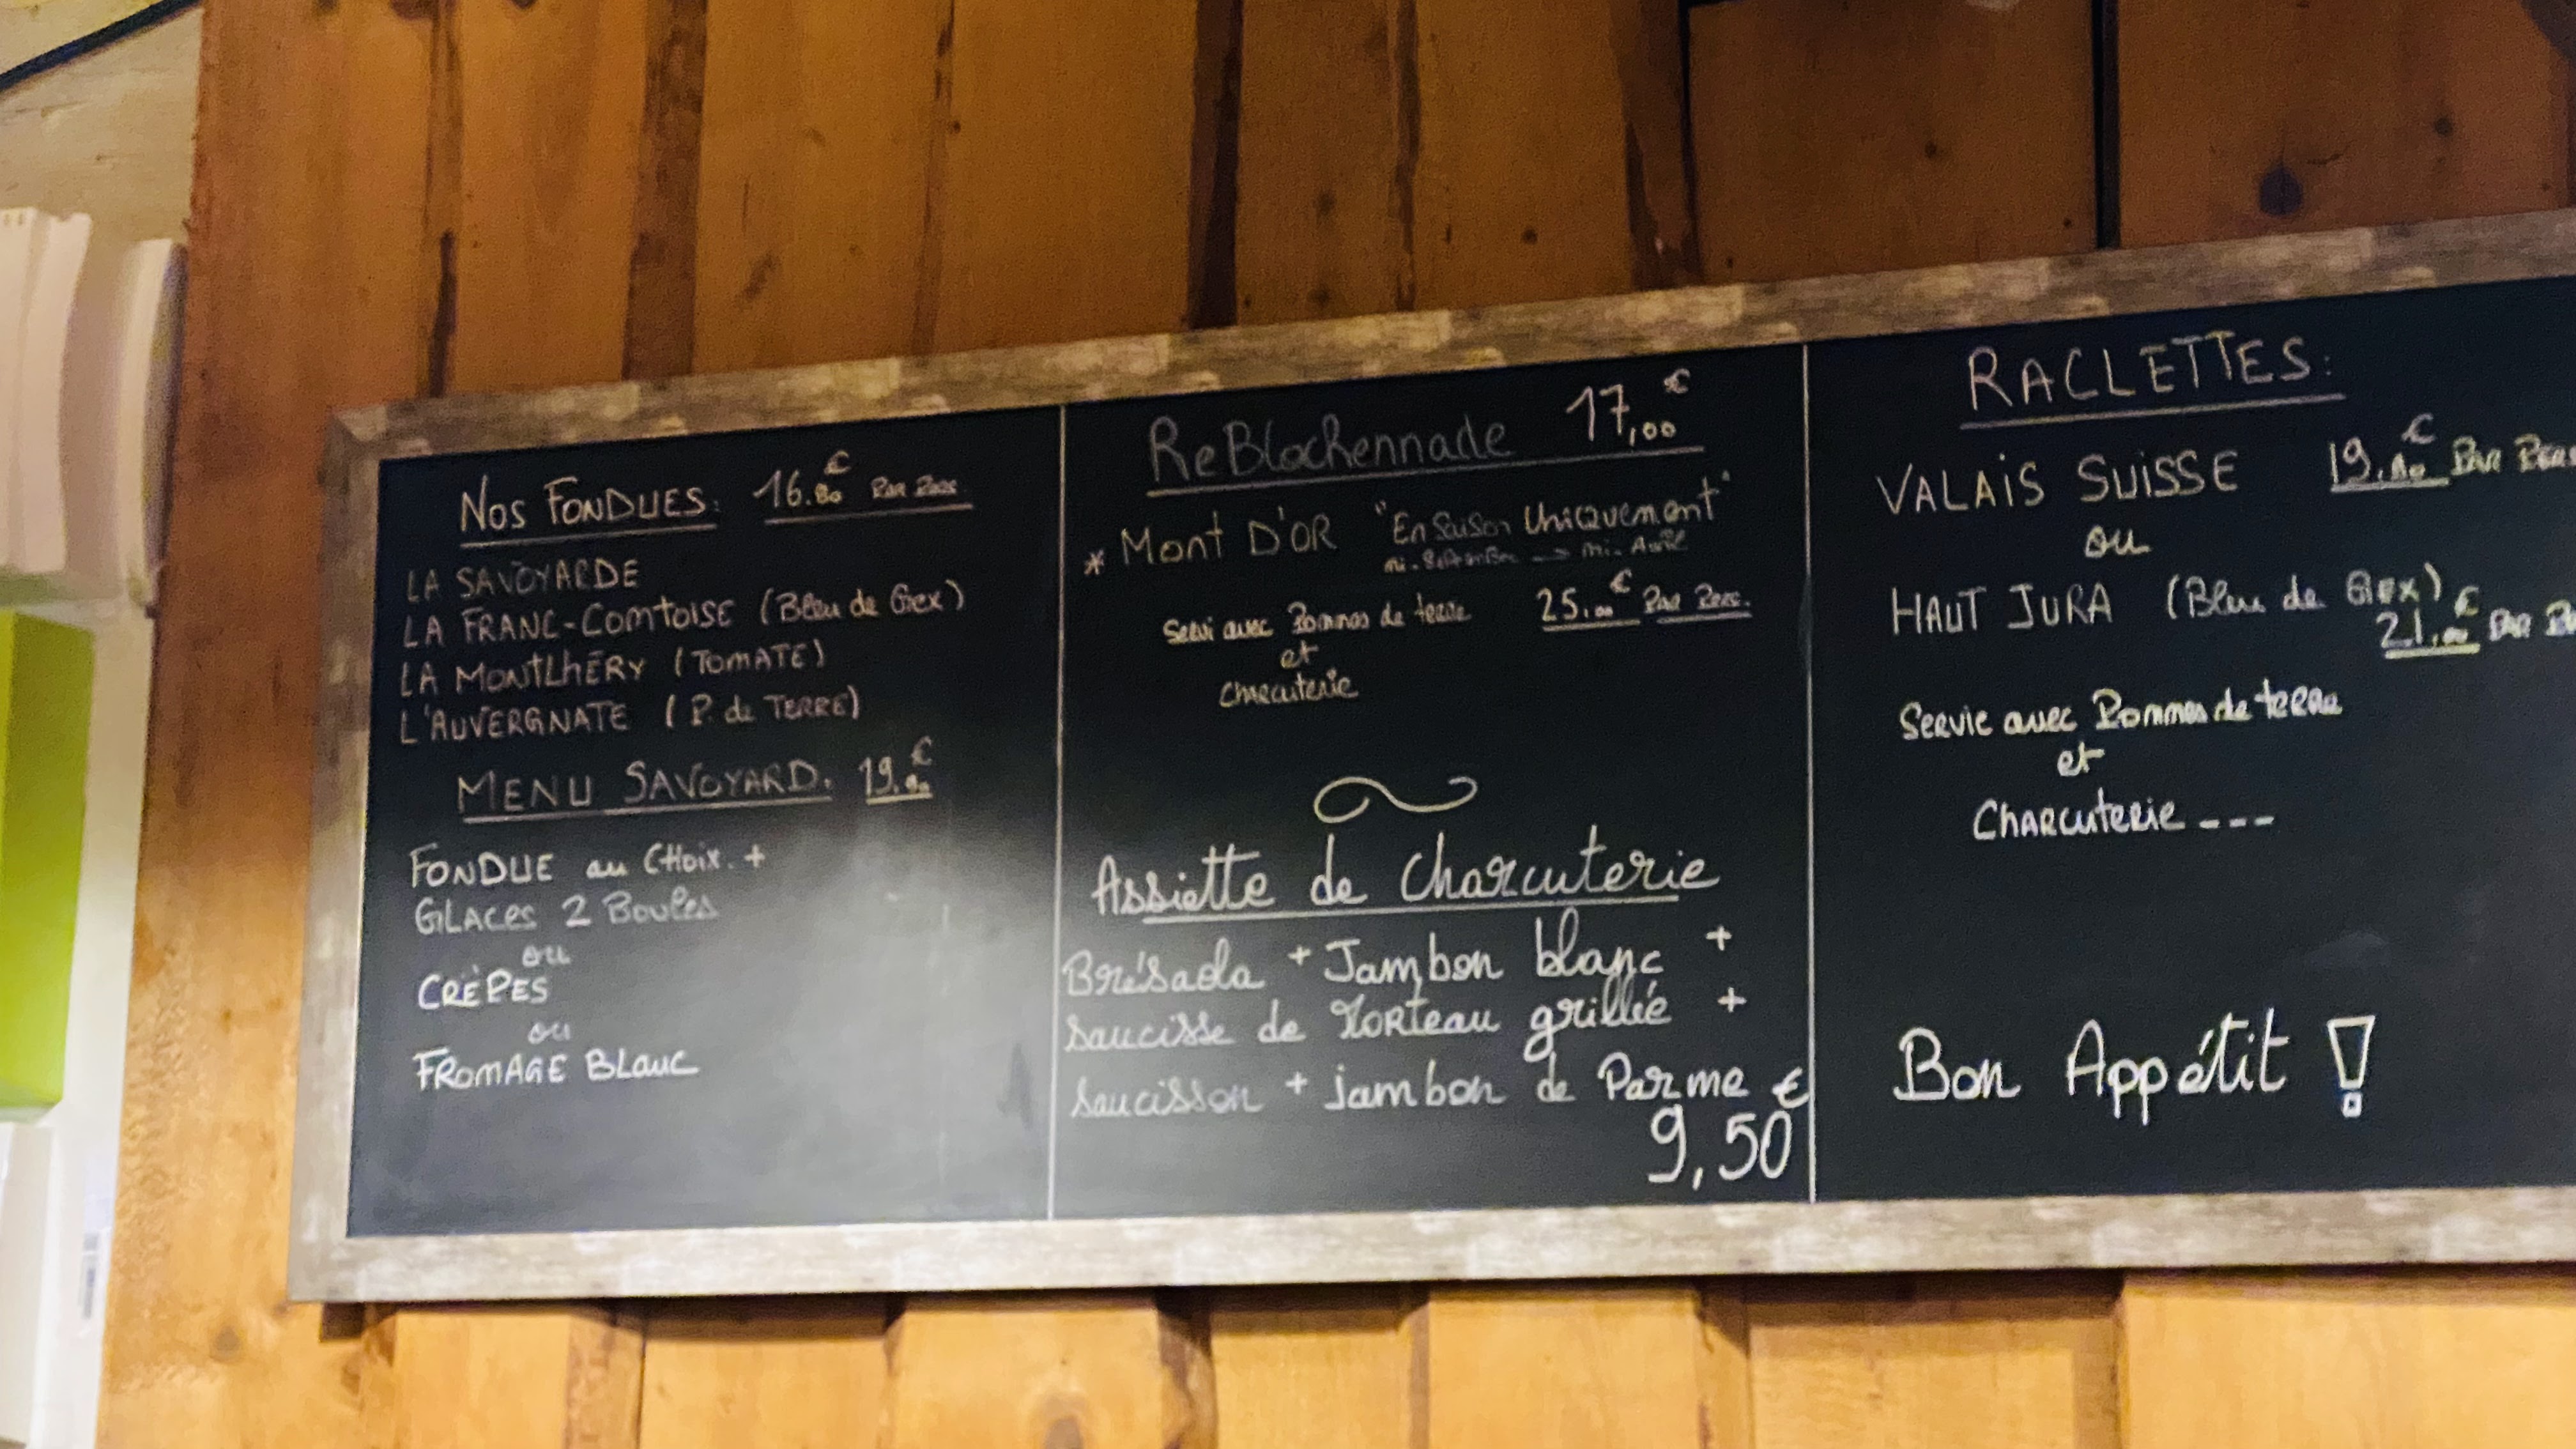 Nos FONDUES: 16.80 € PAR PERS
LA SAVOYARDE
LA FRANC-COMTOISE (Bleu de Gex)
LA MONTLHÉRY (TOMATE)
L'AUVERGNATE (P. de TERRE)
MENU SAVOYARD. 19. €
FONDUE au CHOIX. +
GLACES 2 Boules
ou
CRÊPES
ou
FROMAGE BLANC
ReBlochennade 17,00 €
* Mont D'OR "En Saison Uniquement"
mi-Septembre -> mi-Avril
Servi avec Pommes de terre 25.00 € PAR PERS.
et
Charcuterie
Assiette de Charcuterie
Brésaola + Jambon blanc +
saucisse de Morteau grillée +
saucisson + jambon de Parme €
9,50
RACLETTES:
VALAIS SUISSE 19. € PAR PERS
ou
HAUT JURA (Bleu de Gex)
21.00 € PAR
Servie avec Pommes de terre
et
Charcuterie ---
Bon Appétit !